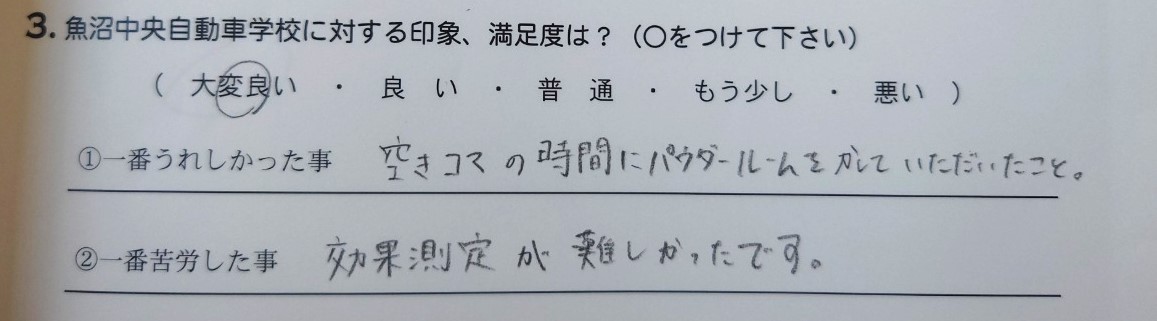 3. 魚沼中央自動車学校に対する印象、満足度は？（〇をつけて下さい）
（　大変良い　・　良　い　・　普　通　・　もう少し　・　悪い　）
①一番うれしかった事　空きコマの時間にパウダールームをかしていただいたこと。
②一番苦労した事　効果測定が難しかったです。